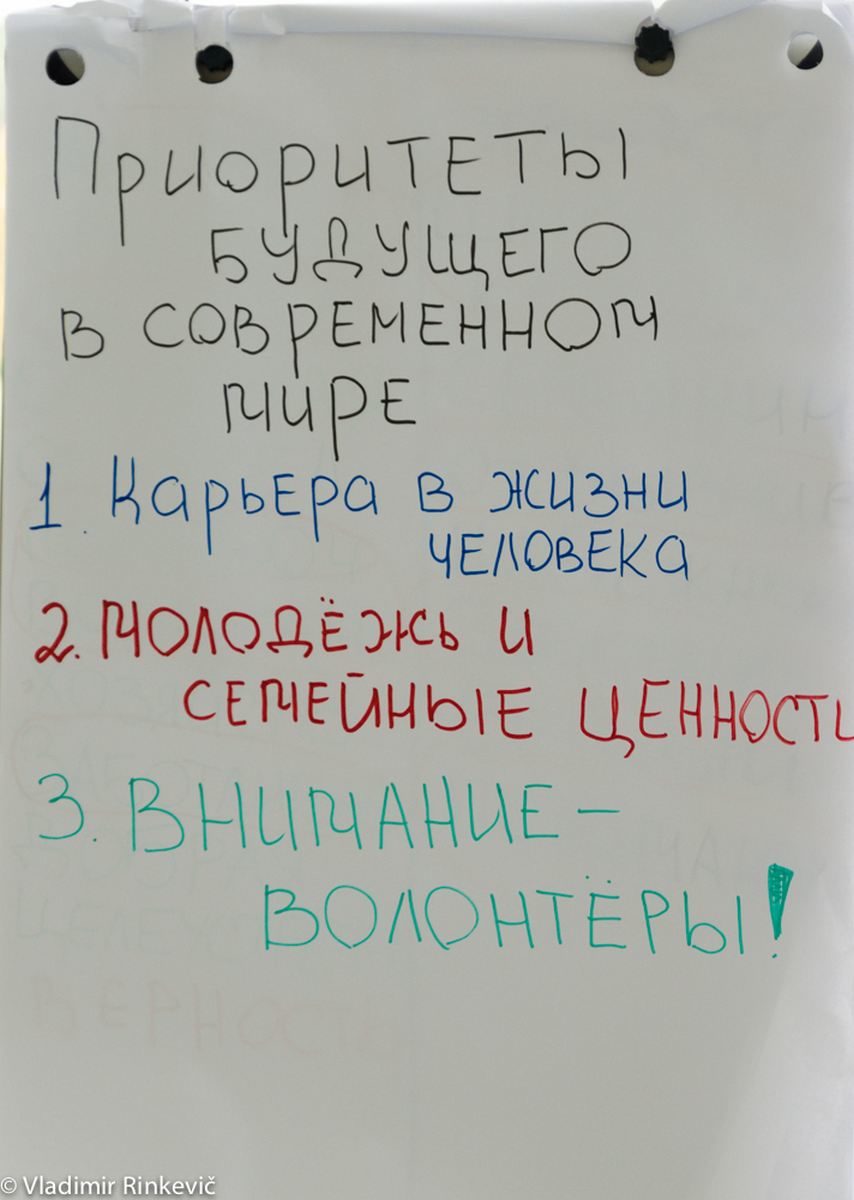 Приоритеты
будущего
в современном
мире
1. Карьера в жизни
человека
2. Молодёжь и
семейные ценности
3. Внимание –
волонтёры!
верность
© Vladimir Rinkevič